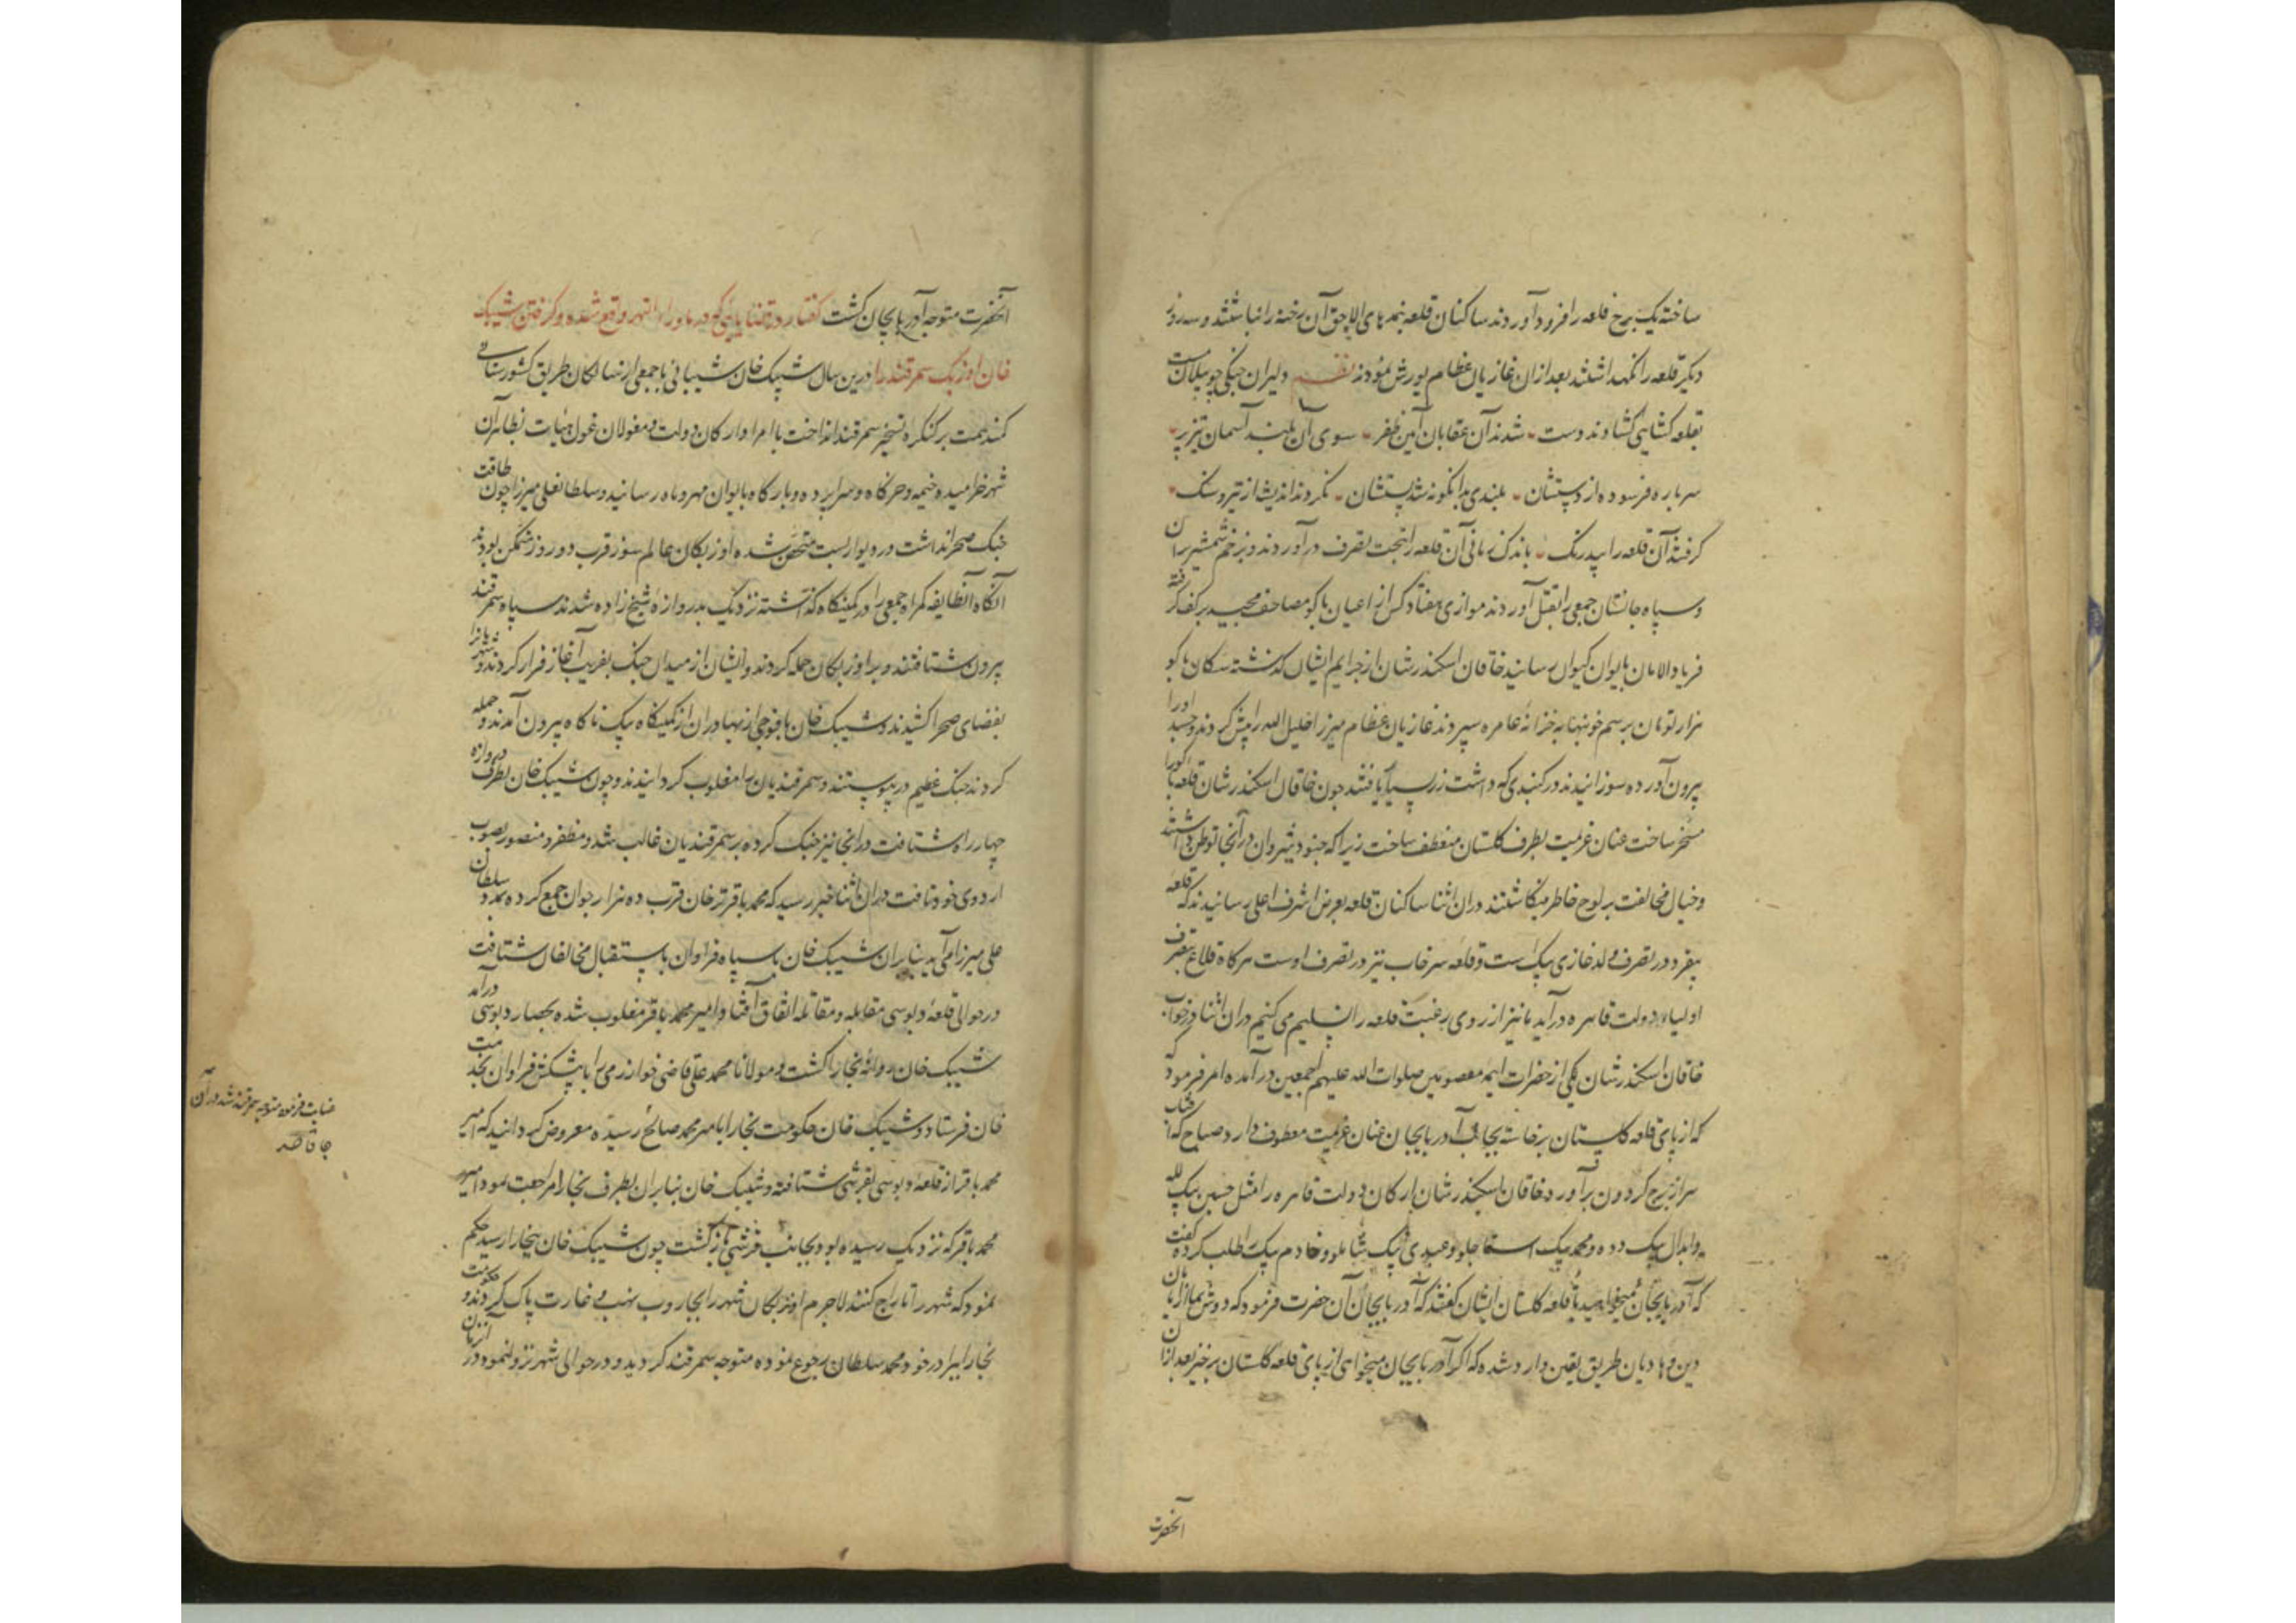 ساخته یک برج قلعه را فرود آوردند ساکنان قلعه بنمدهای الاجق آن رخنه را انباشتند و سه روز
دیگر قلعه را نگهداشتند بعد از ان غازیان عظام یورش نمودند نظم دلیران جنگی چو پیلان مست
بقلعه کشایی کشادند دست شدند آن عقابان آیین ظفر سوی آن بلند آسمان تیز پر
سر باره فرسوده از دستشان بلندی بدانکونه شد پستشان نکردند اندیشه از تیر و سنک
کرفتند آن قلعه را بیدرنک باندک زمانی آن قلعه را بتحت تصرف درآوردند و بزخم شمشیر بران
و سپاه جانستان جمعی را بقتل آوردند موازی هفتاد کس از اعیان باکو مصاحف مجید بر کف کرفته
فریاد الامان بایوان کیوان رسانید خاقان اسکندر شان از جرایم ایشان کذشته سکان باکو
هزار تومان برسم خونبها به خزانه عامره سپردند غازیان عظام میرزا خلیل الله را پیش کردند و جسد اورا
بیرون آورده سوزانیدند در کنبدی که داشت زر بسیار یافتند چون خاقان اسکندر شان قلعه باکورا
مسخر ساخت عنان عزیمت بطرف کلستان منعطف ساخت زیرا که جنود شیروان در آنجا توطن داشتند
و خیال مخالفت بر لوح خاطر مینکاشتند دران اثنا ساکنان قلعه بعرض اشرف اعلی رسانیدند که قلعه
بیغرد در تصرف ولد غازی بیک است و قلعه سرخاب نیز در تصرف اوست هرکاه قلاع بتصرف
اولیاء دولت قاهره درآید ما نیز از روی رغبت قلعه را تسلیم می کنیم دران اثنا در خواب
خاقان اسکندر شان یکی از حضرات ایمه معصومین صلوات الله علیهم اجمعین درآمده امر فرمود که
که از پای قلعه کلستان برخاسته بجانب آذربایجان عنان عزیمت معطوف دارد صباح که آفتاب
سر از برج کردون برآورد خاقان اسکندر شان ارکان دولت قاهره را مثل حسین بیک لله
و ابدال بیک دده و محمد بیک استاجلو و عبدی بیک شاملو و خادم بیک را طلب کرده کفت
که آذربایجان میخواهید یا قلعه کلستان ایشان کفتند که آذربایجان آن حضرت فرمود که دوش بما از پادشاهان
دین و هادیان طریق یقین وارد شده که اکر آذربایجان میخواهی از پای قلعه کلستان برخیز بعد ازان
آنحضرت
آنحضرت متوجه آذربایجان کشت کفتار در قضایایی که در ماوراء النهر واقع شده و کرفتن شیبک
خان اوزبک سمرقند را درین سال شیبک خان شیبانی با جمعی از نسالکان طریق کشورستانی
کمند همت بر کنکره تسخیر سمرقند انداخت با امرا و ارکان دولت و مغولان غول هیأت بظاهر آن
شهر خرامید و خیمه و خرکاه و سراپرده و بارکاه بایوان مهر و ماه رسانید و سلطانعلی میرزا چون طاقت
جنک صحرا نداشت در دیوار بست متحصن شده اوزبکان عالم سوز قرب ده روز متمکن بودند
آنکاه آنطایفه کمراه جمعی را در کمینکاه کذاشته نزدیک بدروازه شیخ زاده شدند سپاه سمرقند
بیرون شتافتند و بر اوزبکان حمله کردند و ایشان از میدان جنک بفریب آغاز فرار کردند و شهریانرا
بفضای صحرا کشیدند و شیبک خان با فوجی از بهادران از کمینکاه بیک ناکاه بیرون آمدند و حمله
کردند جنک عظیم در پیوستند و سمرقندیان را مغلوب کردانیدند و چون شیبک خان بطرف دروازه
چهار راه شتافت در انجا نیز جنک کرده بر سمرقندیان غالب شد و مظفر و منصور بصوب
اردوی خود تافت دران اثنا خبر رسید که محمد باقر ترخان قرب ده هزار جوان جمع کرده بمدد سلطان
علی میرزا می آید بنابران شیبک خان با سپاه فراوان باستقبال مخالفان شتافت
در حوالی قلعه دبوسی مقابله و مقاتله اتفاق افتاد امیر محمد باقر مغلوب شده بحصار دبوسی درآمد
شیبک خان روانه بخارا کشت و مولانا محمد علی قاضی خوارزمی را با پیشکش فراوان بخدمت
خان فرستاد و شیبک خان حکومت بخارا بامیر محمد صالح رسیده معروض کردانید که امیر
محمد باقر از قلعه دبوسی بقرشی شتافته و شیبک خان بنابران بطرف بخارا مراجعت نمود امیر
محمد باقر که نزدیک رسیده بود بجانب قرشی بازکشت چون شیبک خان ببخارا رسید حکم
نمود که شهر را تاراج کنند لاجرم اوزبکان شهر را بجاروب نهب و غارت پاک کردند و حکومت
بخارا ببرادر خود محمد سلطان رجوع نموده متوجه سمرقند کردید و در حوالی شهر نزول نمود در آنزمان
عنایت فرموده متوجه سمرقند شد در آن
جا قاصد